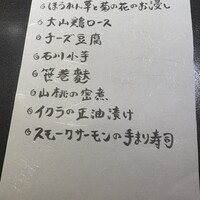 ◎ほうれん草と菊の花のお浸し
◎大山鶏ロース
◎チーズ豆腐
◎石川小芋
◎笹巻麩
◎山桃の蜜煮
◎イクラの正油漬け
◎スモークサーモンの手まり寿司